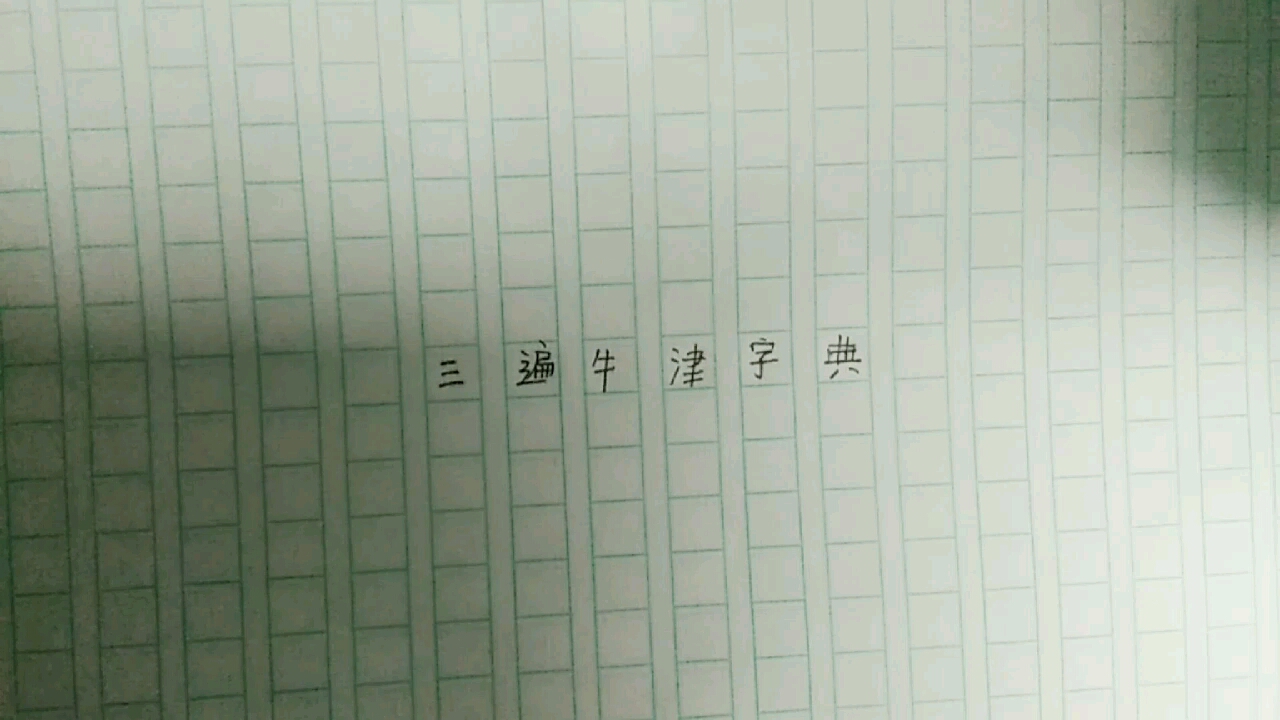 三遍牛津字典